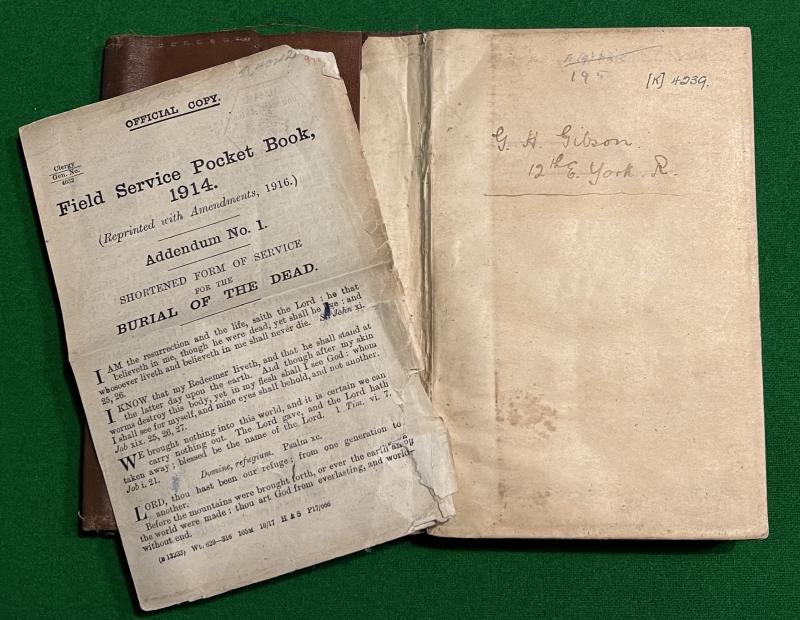 OFFICIAL COPY.
Clergy
Gen. No.
4632
Field Service Pocket Book,
1914.
(Reprinted with Amendments, 1916.)
Addendum No. 1.
SHORTENED FORM OF SERVICE
FOR THE
BURIAL OF THE DEAD.
I AM the resurrection and the life, saith the Lord; he that
believeth in me, though he were dead, yet shall he live: and
whosoever liveth and believeth in me shall never die. St. John xi.
25, 26.
I KNOW that my Redeemer liveth, and that he shall stand at
the latter day upon the earth. And though after my skin
worms destroy this body, yet in my flesh shall I see God: whom
I shall see for myself, and mine eyes shall behold, and not another.
Job xix. 25, 26, 27.
WE brought nothing into this world, and it is certain we can
carry nothing out. The Lord gave, and the Lord hath
taken away; blessed be the name of the Lord. 1 Tim. vi. 7.
Job i. 21.
Domine, refugium. Psalm xc.
LORD, thou hast been our refuge: from one generation to
another.
Before the mountains were brought forth, or ever the earth and
the world were made: thou art God from everlasting, and world
without end.
Wt. 629—316 105M 10/17 H & S P17/606
195
[K] 4239.
G. H. Gibson.
12th E. York. R.